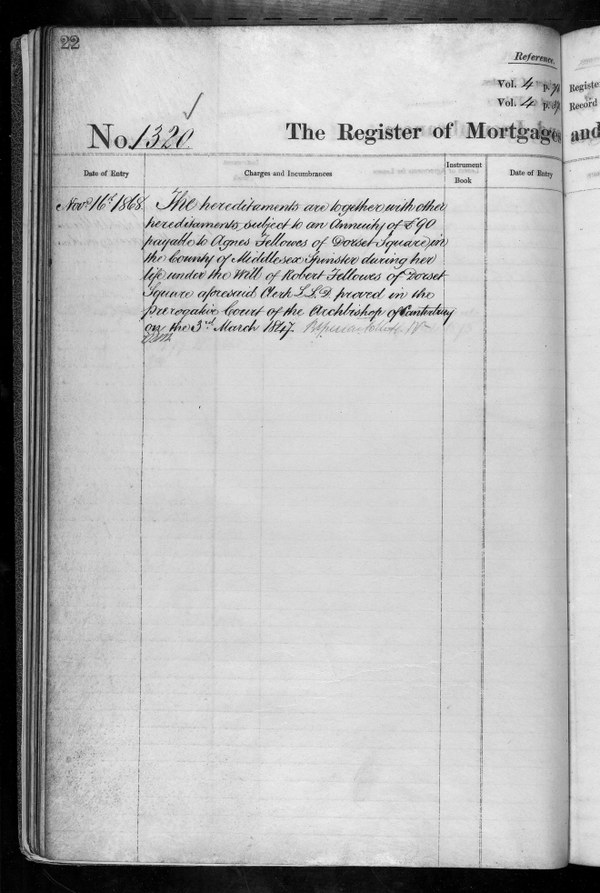 22
Reference.
Vol. 4 p.
Vol. 4 p.
Registe
Record
No. 1320
The Register of Mortgages and
Date of Entry
Charges and Incumbrances
Instrument
Book
Date of Entry
Novr. 16th 1868
The hereditaments are together with other
hereditaments subject to an Annuity of £90
payable to Agnes Fellowes of Dorset Square in
the County of Middlesex Spinster during her
life under the Will of Robert Fellowes of Dorset
Square aforesaid Clerk L.L.D. proved in the
Prerogative Court of the Archbishop of Canterbury
on the 3rd March 1847.